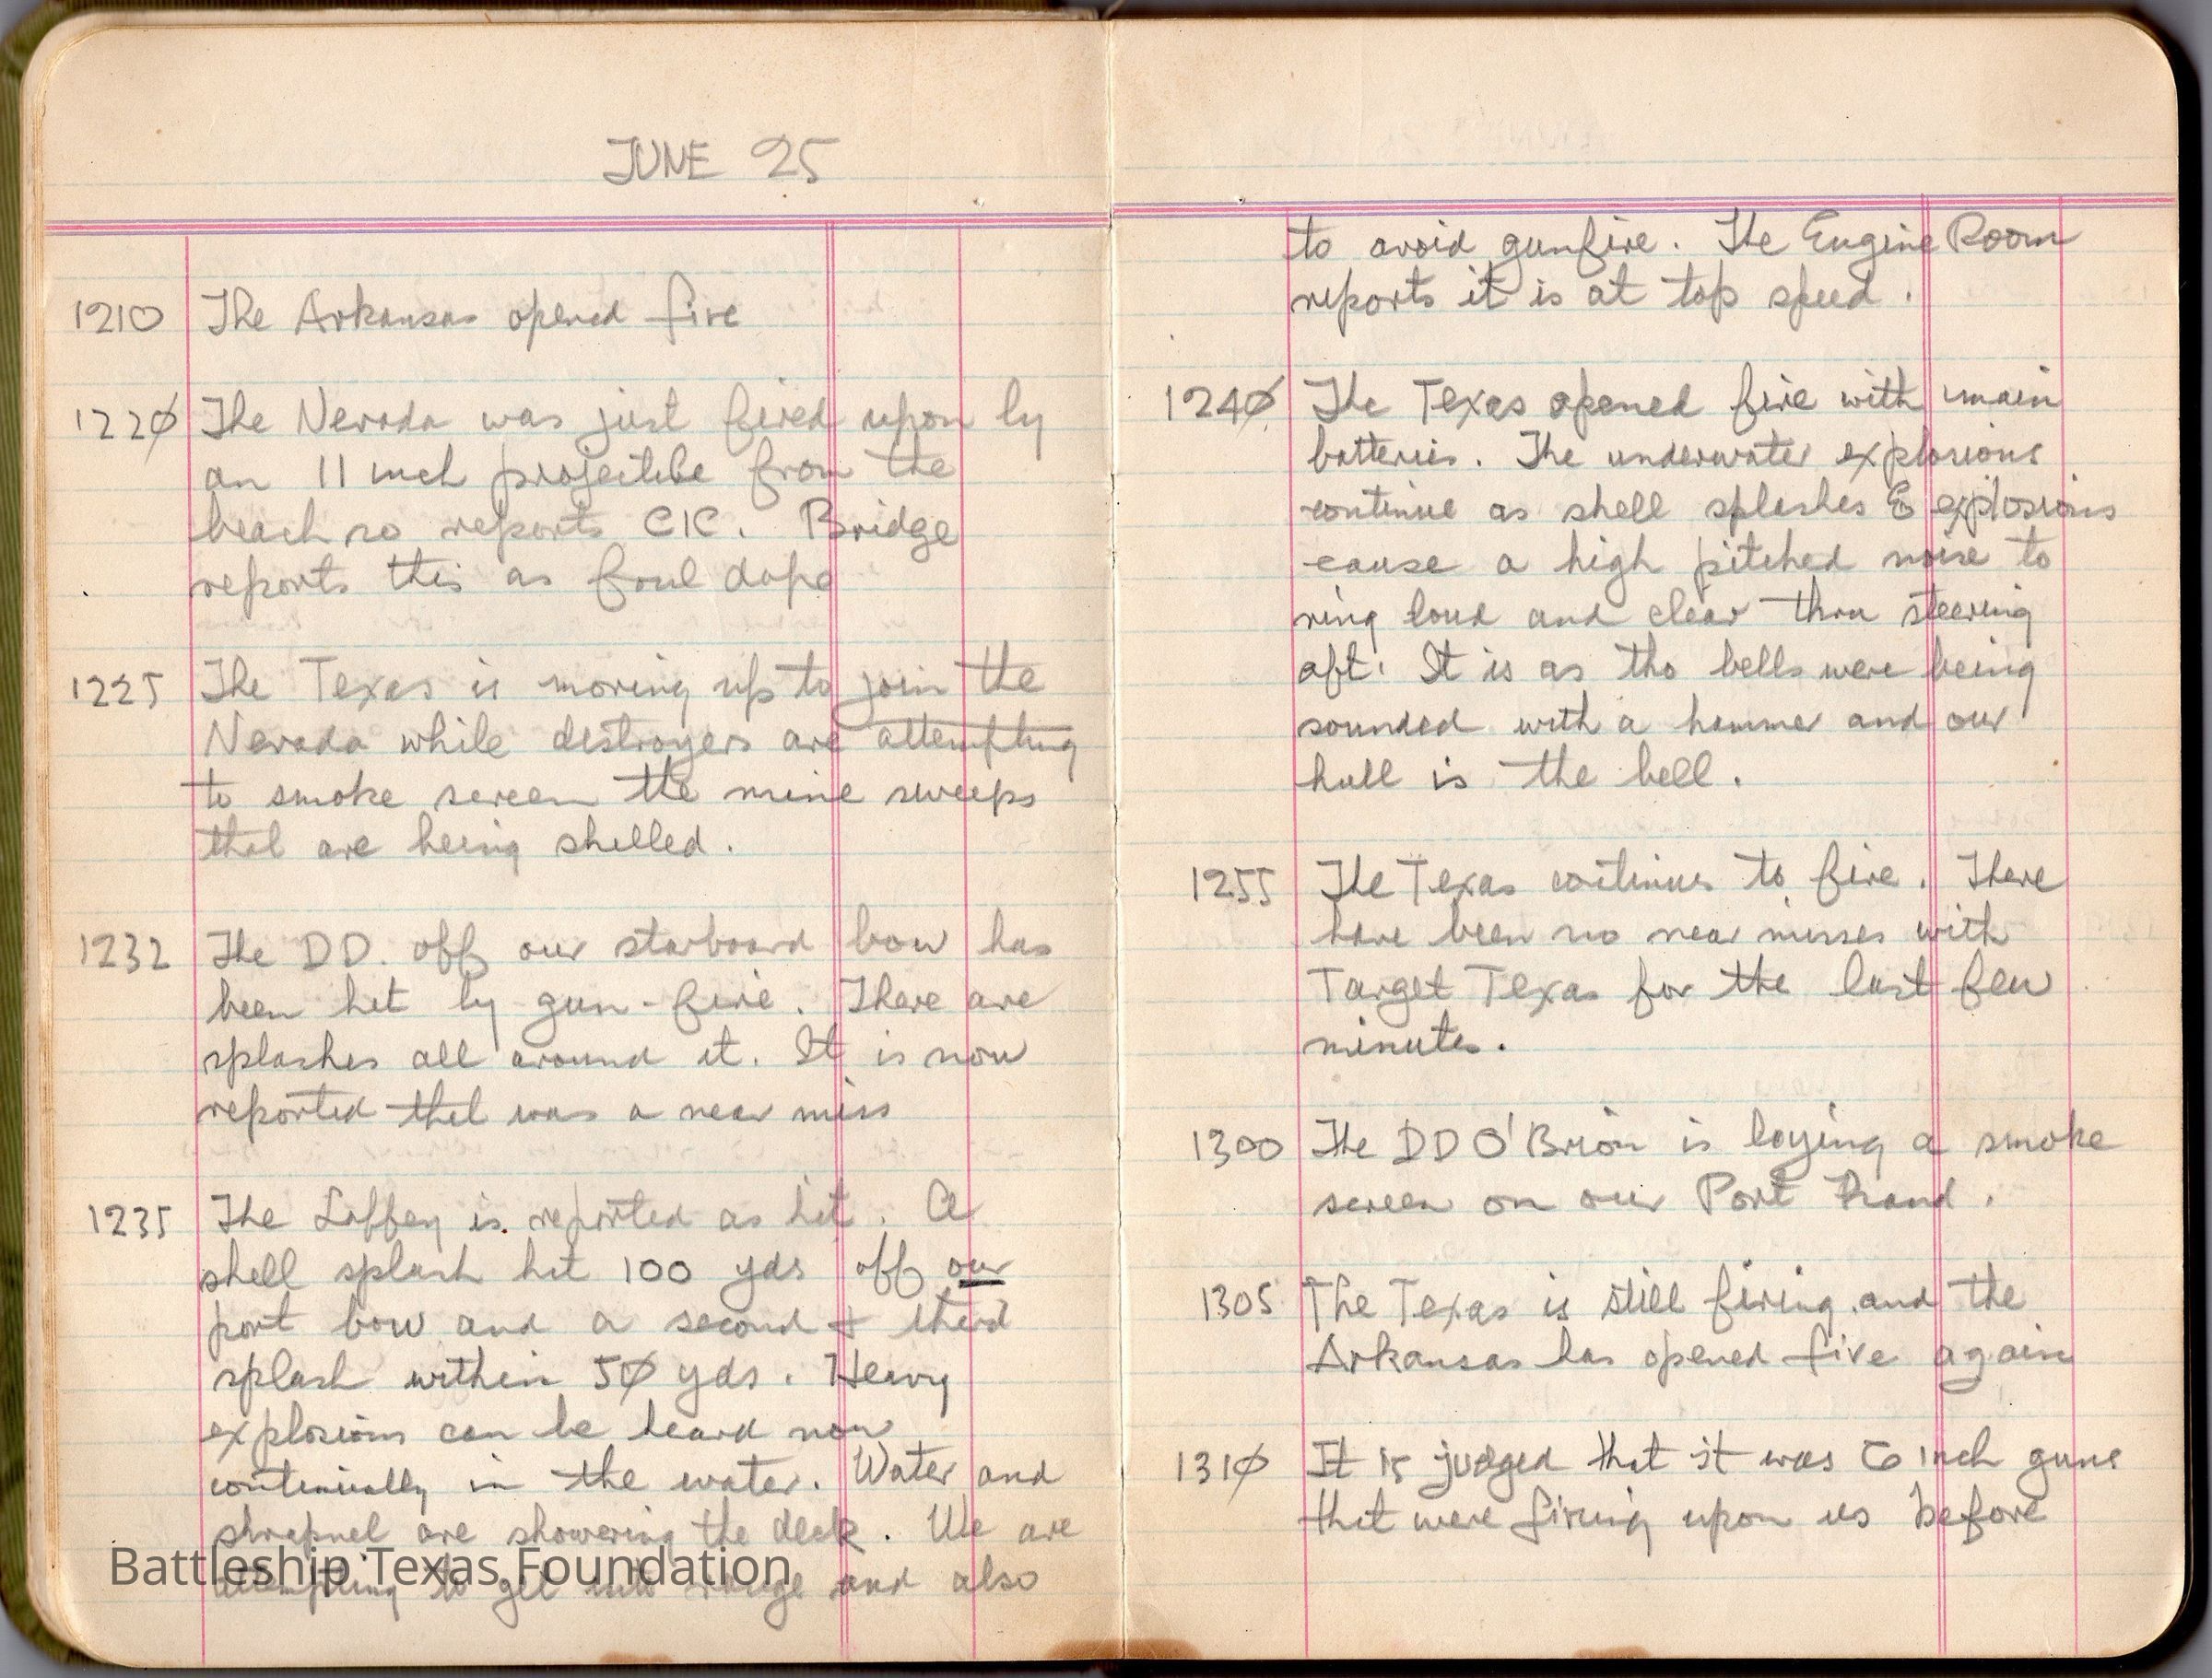 JUNE 25
1210 The Arkansas opened fire
1220 The Nevada was just fired upon by
an 11 inch projectile from the
beach so reports CIC. Bridge
reports this as foul dope
1225 The Texas is moving up to join the
Nevada while destroyers are attempting
to smoke screen the mine sweeps
that are being shelled.
1232 The DD. off our starboard bow has
been hit by gun-fire. There are
splashes all around it. It is now
reported that was a near miss
1235 The Laffey is reported as hit. A
shell splash hit 100 yds off our
port bow and a second + third
splash within 50 yds. Heavy
explosions can be heard now
continually in the water. Water and
shrapnel are showering the deck. We are
attempting to get into range and also
Battleship Texas Foundation
to avoid gunfire. The Engine Room
reports it is at top speed.
1240 The Texas opened fire with main
batteries. The underwater explosions
continue as shell splashes & explosions
cause a high pitched noise to
ring loud and clear thru steering
aft. It is as tho bells were being
sounded with a hammer and our
hull is the bell.
1255 The Texas continues to fire. There
have been no near misses with
Target Texas for the last few
minutes.
1300 The DD O'Brion is laying a smoke
screen on our Port hand.
1305 The Texas is still firing and the
Arkansas has opened fire again
1310 It is judged that it was 6 inch guns
that were firing upon us before